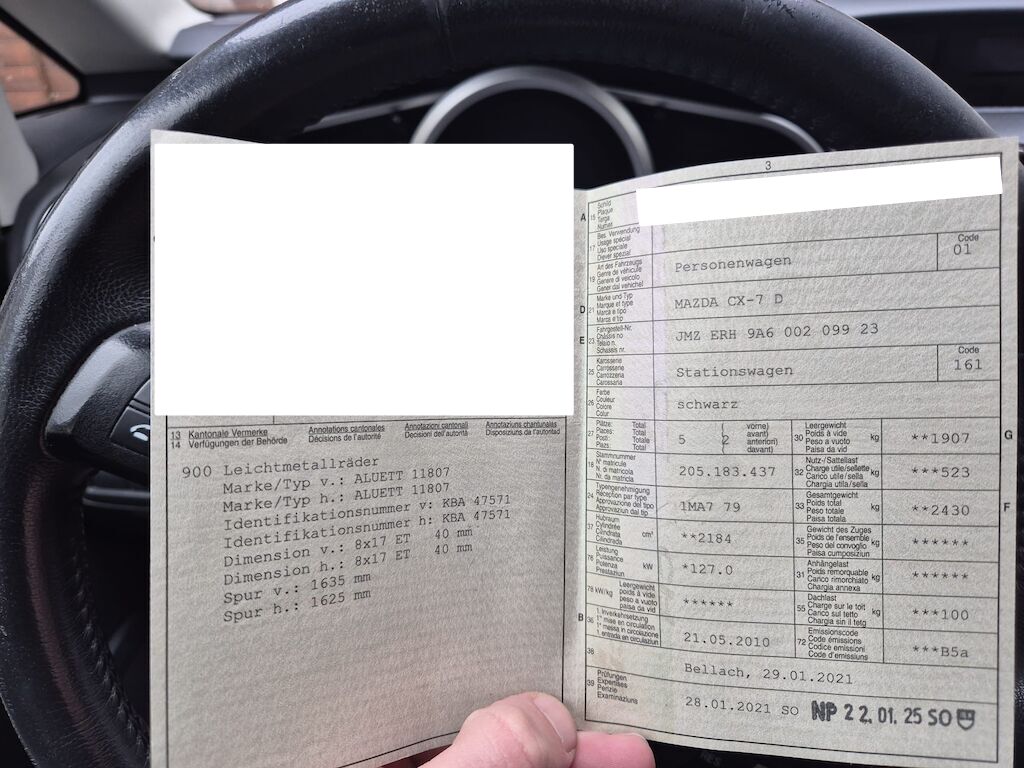 13 Kantonale Vermerke Annotations cantonales Annotazioni cantonali Annotaziuns chantunalas
14 Verfügungen der Behörde Décisions de l'autorité Decisioni dell'autorità Disposiziuns da l'autoritad
900 Leichtmetallräder
Marke/Typ v.: ALUETT 11807
Marke/Typ h.: ALUETT 11807
Identifikationsnummer v: KBA 47571
Identifikationsnummer h: KBA 47571
Dimension v.: 8x17 ET 40 mm
Dimension h.: 8x17 ET 40 mm
Spur v.: 1635 mm
Spur h.: 1625 mm
3
A 15 Schild
Plaque
Targa
Numer
17 Bes. Verwendung
Usage spécial
Uso speciale
Diever spezial
19 Art des Fahrzeugs
Genre de véhicule
Genere di veicolo
Gener dal vehichel
Personenwagen
Code
01
D 21 Marke und Typ
Marque et type
Marca e tipo
Marca e tip
MAZDA CX-7 D
E 23 Fahrgestell-Nr.
Châssis no
Telaio n.
Schassis nr.
JMZ ERH 9A6 002 099 23
25 Karosserie
Carrosserie
Carrozzeria
Carossaria
Stationswagen
Code
161
26 Farbe
Couleur
Colore
Colur
schwarz
27 Plätze: Total
Places: Total
Posti: Totale
plazs: Total
5 (2 vorne)
avant)
anteriori)
davant)
G 30 Leergewicht
Poids à vide
Peso a vuoto
Paisa da vid
kg
**1907
18 Stammnummer
N° matricule
N. di matricola
Nr. da matricla
205.183.437
32 Nutz-/Sattellast
Charge utile/sellette
Carico utile/sella
Chargia utila/sella
kg
***523
24 Typengenehmigung
Réception par type
Approvazione del tipo
Approvaziun dal tip
1MA7 79
F 33 Gesamtgewicht
Poids total
Peso totale
Paisa totala
kg
**2430
37 Hubraum
Cylindrée
Cilindrata
Cilindrada
cm³
**2184
35 Gewicht des Zuges
Poids de l'ensemble
Peso del convoglio
Paisa cumposiziun
kg
******
76 Leistung
Puissance
Potenza
Prestaziun
kW
*127.0
31 Anhängelast
Poids remorquable
Carico rimorchiato
Chargia annexa
kg
******
78 kW/kg Leergewicht
poids à vide
peso a vuoto
paisa da vid
******
55 Dachlast
Charge sur le toit
Carico sul tetto
Chargia sin il tetg
kg
***100
B 36 1. Inverkehrsetzung
1re mise en circulation
1a messa in circolazione
1. entrada en circulaziun
21.05.2010
72 Emissionscode
Code émissions
Codice emissioni
Code d'emissiuns
***B5a
38
Bellach, 29.01.2021
39 Prüfungen
Expertises
Perizie
Examinaziuns
28.01.2021 SO NP 22.01.25 SO